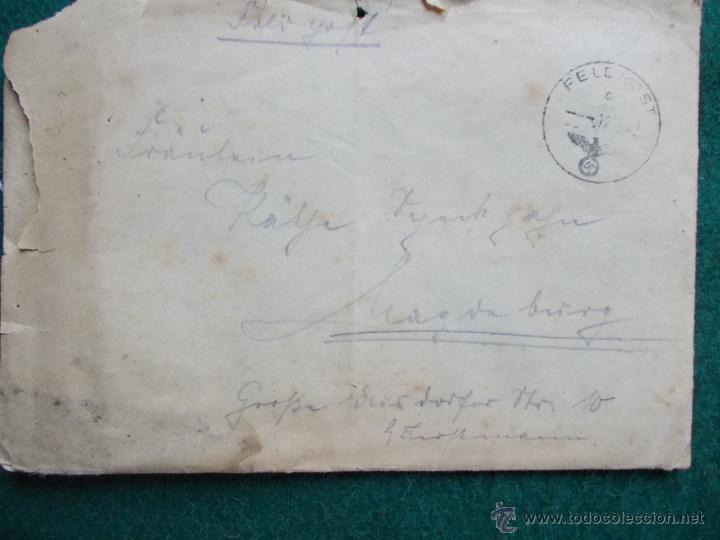 Feldpost
FELDPOST
c
Fräulein
Käthe
Magdeburg
Große Diesdorfer Str. 10
www.todocoleccion.net